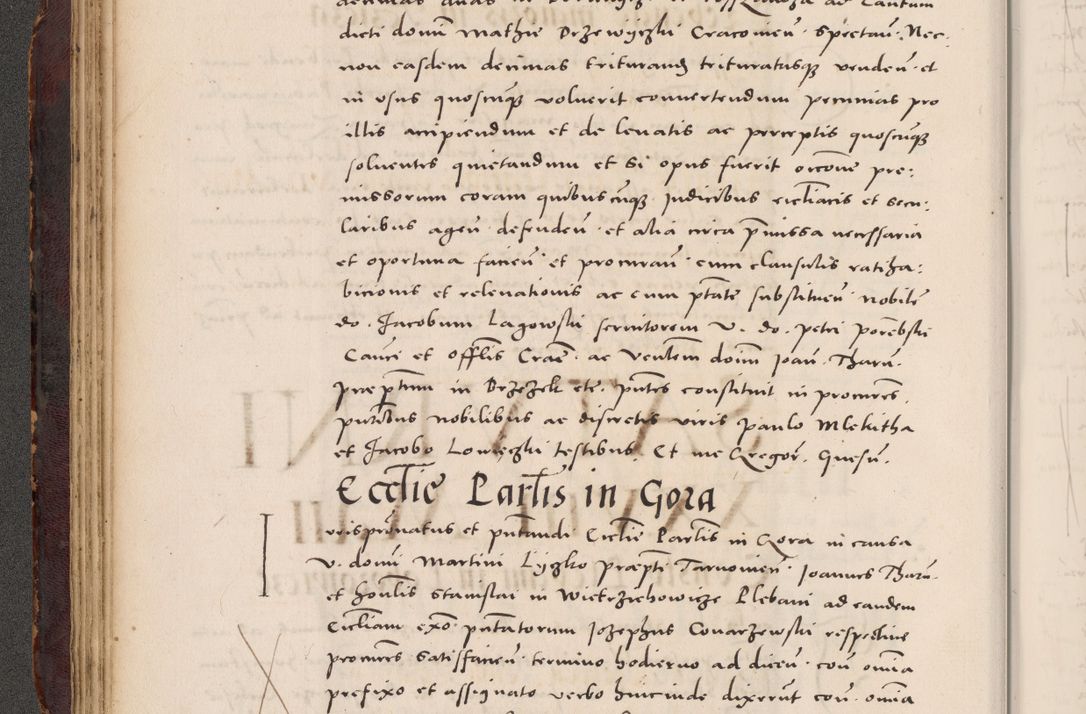 dicti domini Mathie Drzewijczki Cracovien. spectan. Nec
non easdem decimas triturand. trituratasque venden. et
in usus quoscunque voluerit convertendum pecunias pro
illis accipiendum et de levatis ac perceptis quoscunque
solventes quietandum et si opus fuerit occone pre:
missorum coram quibuscunque Judicibus ecclliacis et secu:
laribus agen. defenden. et alia circa pmissa necessaria
et oportuna facien. et procuran. cum clausulis ratiha:
bicionis et relevationis ac cum ptate substituen. nobile
do. Jacobum Lagowski servitorem V. do. petri porebski
Canci et Offlis Craen. ac Ventem domi Joan. Tharn.
prepttum in Brzezek etc. pntes constituit in procures.
pntibus nobilibus ac discretis viris paulo Mlekitha
et Jacobo Lowiczki testibus. Et me Gregor.
Ecclie Parlis in Gora
Jurispronatus et pntandi Ecclie Parlis in Gora in causa
V. domi Martini Lyczko prepti Tarnovien. Joannes Tharn.
et honlis Stanislai in Wietrzichowicze Plebani ad eandem
Eccliam exo pntatorum Jozephus Conarzewski respective
procures satisfacien. termino hodierno ad dicen. con omia
prefixo et assignato verbo hincinde dixerunt con. omia